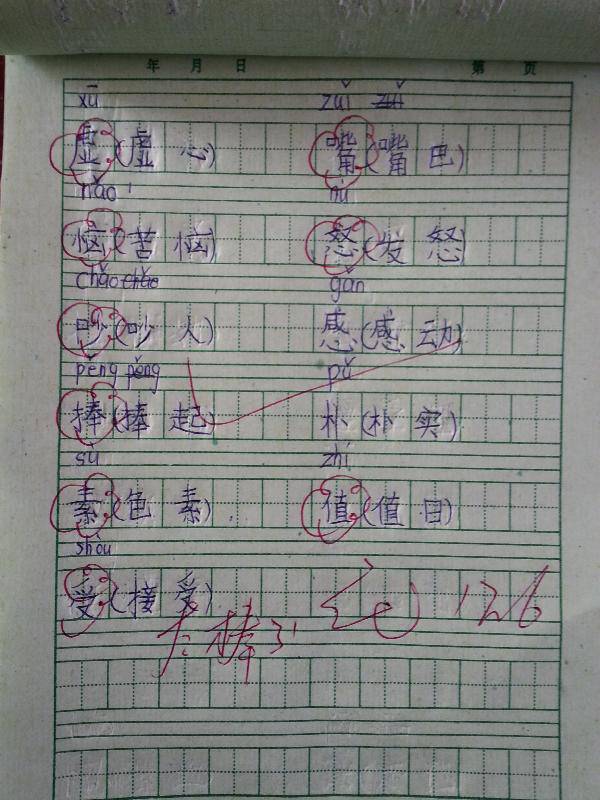 年 月 日 第 页
xū zuǐ
虚(虚心) 嘴(嘴巴)
nǎo nù
恼(苦恼) 怒(发怒)
chǎo gǎn
吵(吵人) 感(感动)
pěng pǔ
捧(捧起) 朴(朴实)
sù zhí
素(色素) 值(值日)
shòu
受(接受)
太棒了 12.6